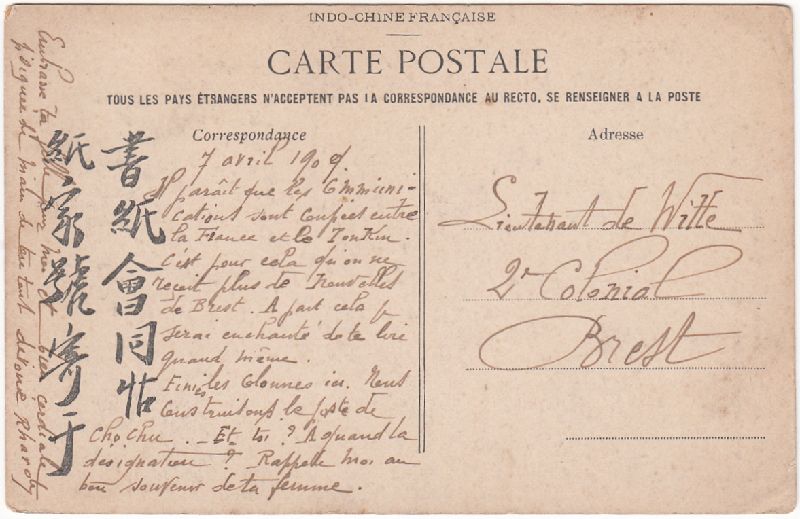 INDO-CHINE FRANÇAISE
CARTE POSTALE
TOUS LES PAYS ÉTRANGERS N'ACCEPTENT PAS LA CORRESPONDANCE AU RECTO, SE RENSEIGNER A LA POSTE
Correspondance
7 avril 1909
Il paraît que les Communi-
cations sont coupées entre
la France et le Tonkin.
C'est pour cela qu'on ne
reçoit plus de Nouvelles
de Brest. A part cela je
serai enchanté de te lire
quand même.
Finies les Colonnes ici. Nous
Construisons le poste de
Cho Chu. - Et toi ? A quand la
désignation ? Rappelle moi au
bon souvenir de ta femme.
Embrasse ta fille pour moi et bien cordiale
poignée de main de ton tout dévoué
書紙會同帖
紙家號寄于
Adresse
Lieutenant de Witte
2e Colonial
Brest